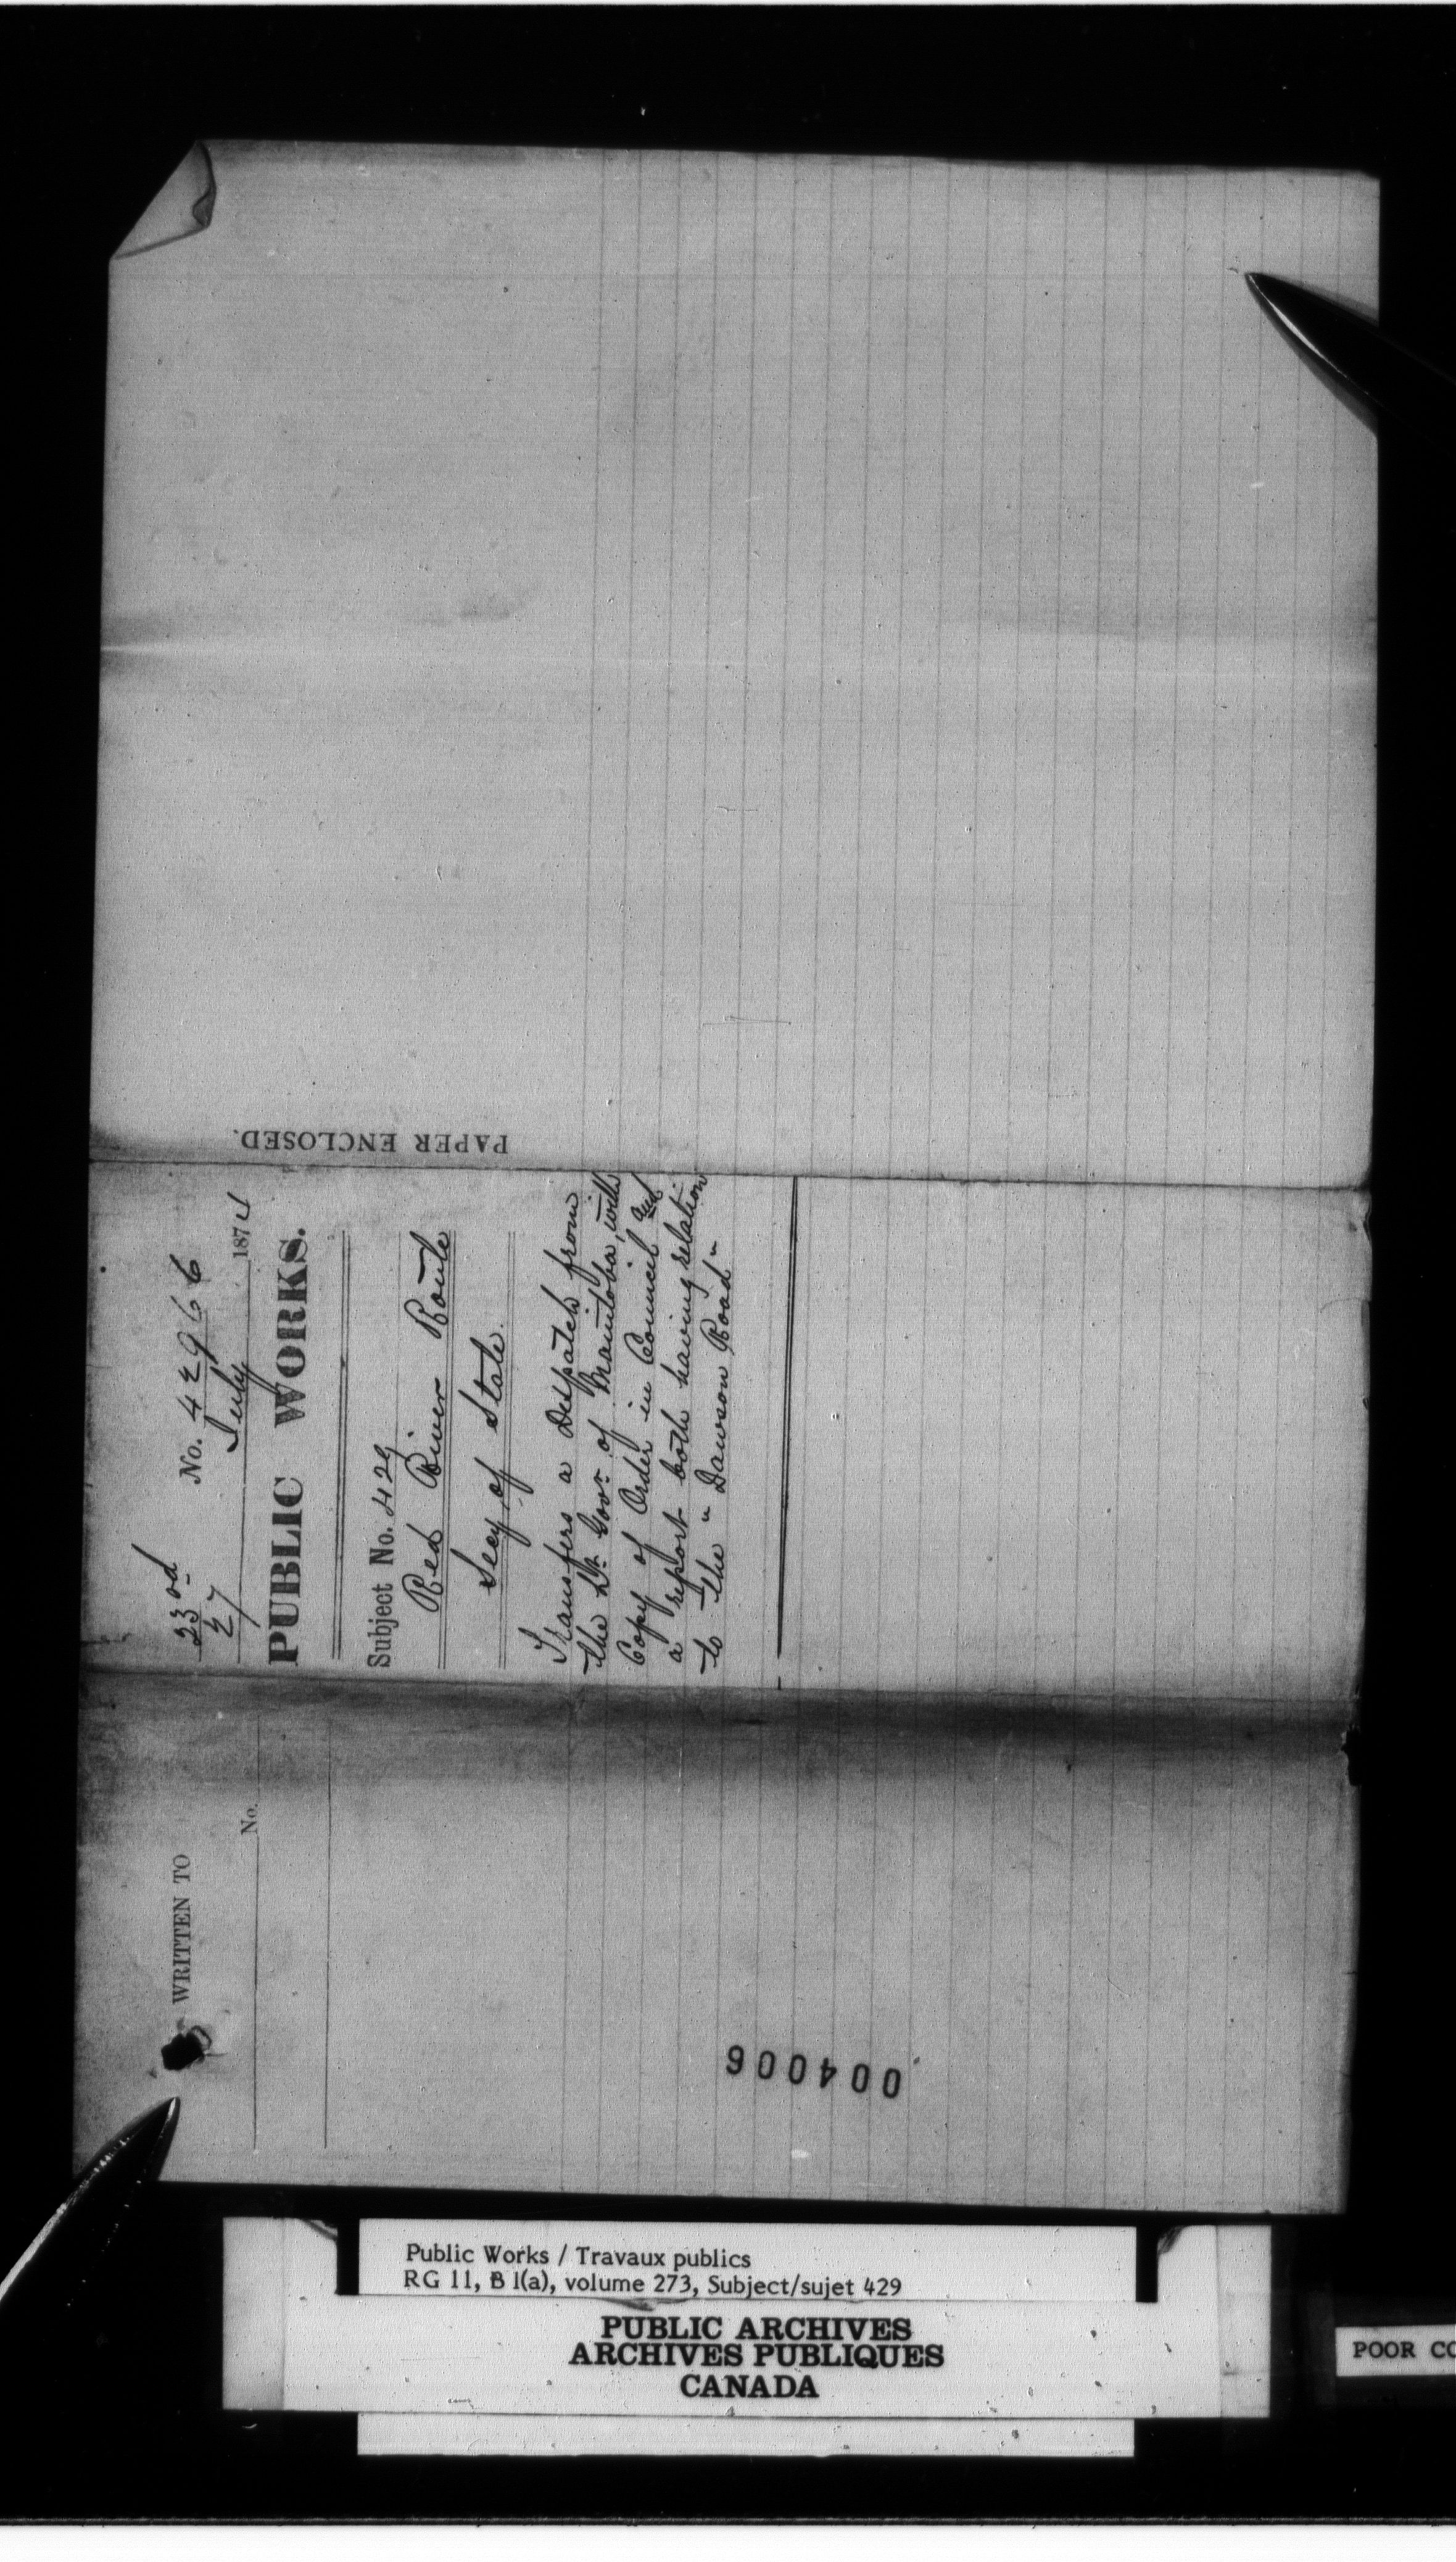 PAPER ENCLOSED.
No. 42966
23rd July 1874
27
PUBLIC WORKS.
Subject No. 429
Red River Route
Secy of State.
Transfers a Despatch from
the Lt. Govr. of Manitoba, with
Copy of Order in Council and
a report both having relation
to the "Dawson Road"
WRITTEN TO
No.
004006
Public Works / Travaux publics
RG 11, B 1(a), volume 273, Subject/sujet 429
PUBLIC ARCHIVES
ARCHIVES PUBLIQUES
CANADA
POOR CO